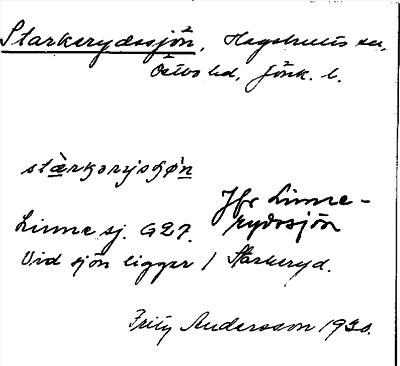 Starkerydssjön, Hagshults sn,
Östbo hd, Jönk. l.
stàrkərysjø̀n
Jfr Linne-
rydssjön
Linne sj. G27.
Vid sjön ligger / Starkeryd.
Fritz Andersson 1930.